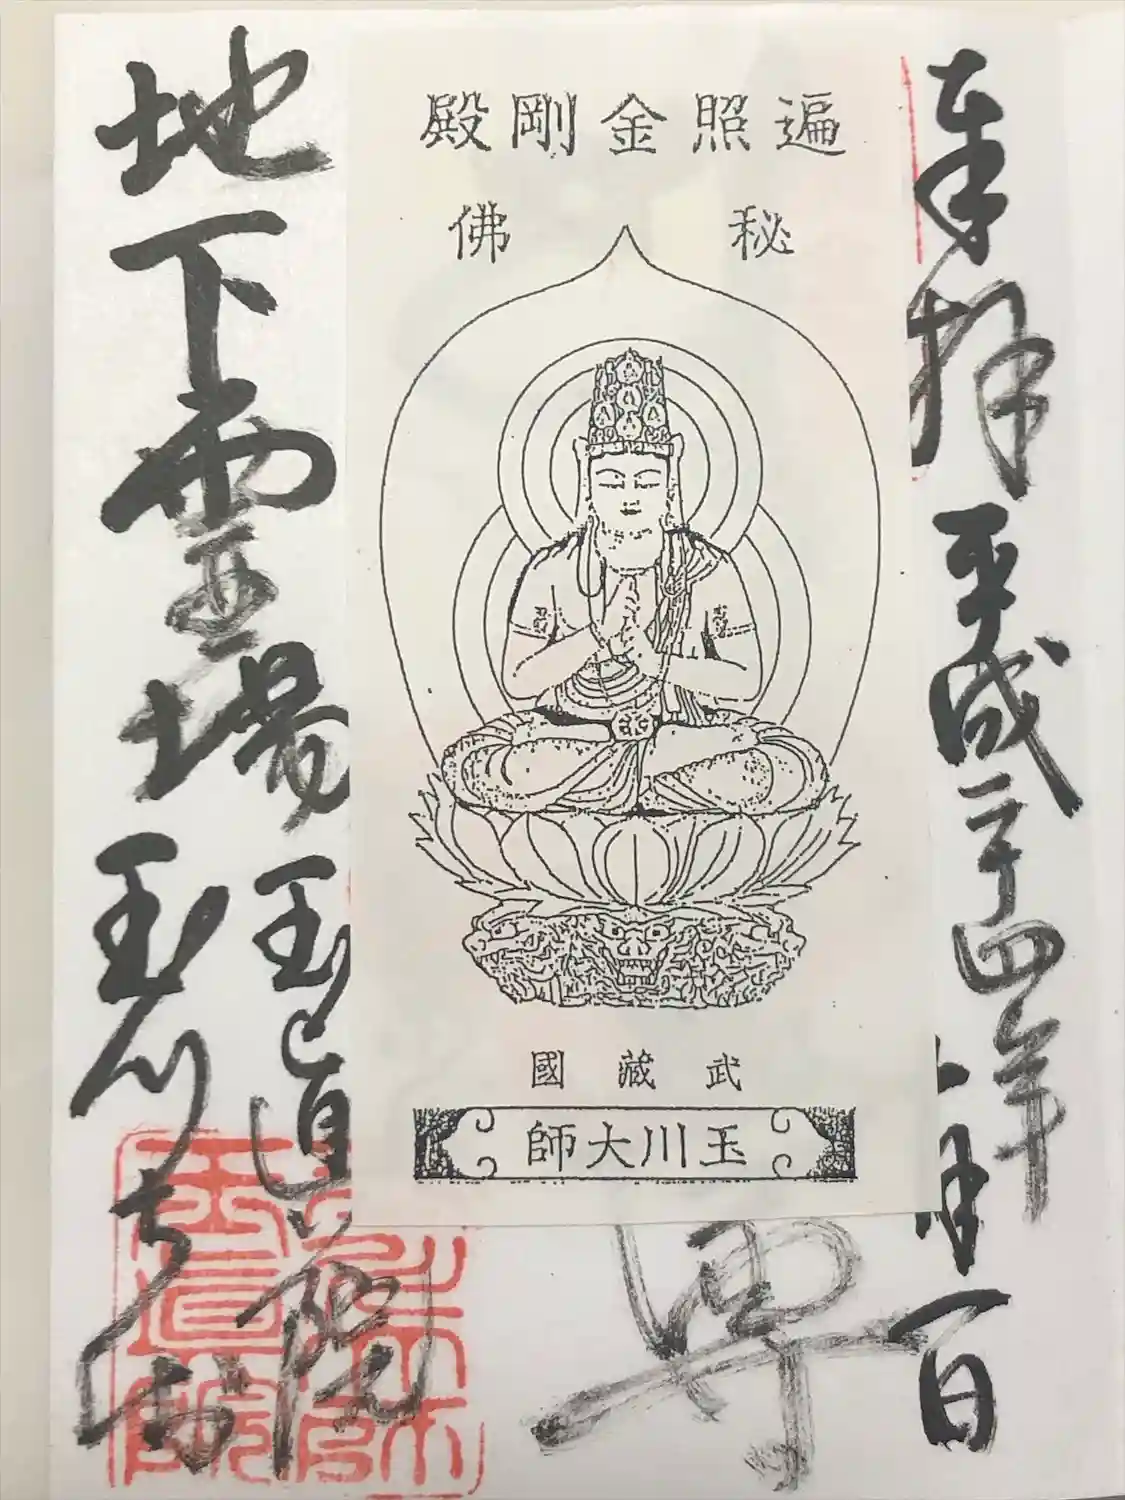 奉拝 平成二十四年
月一日
遍照金剛殿
秘佛
武藏國
玉川大師
尊
地下霊場 玉真院
玉川大師